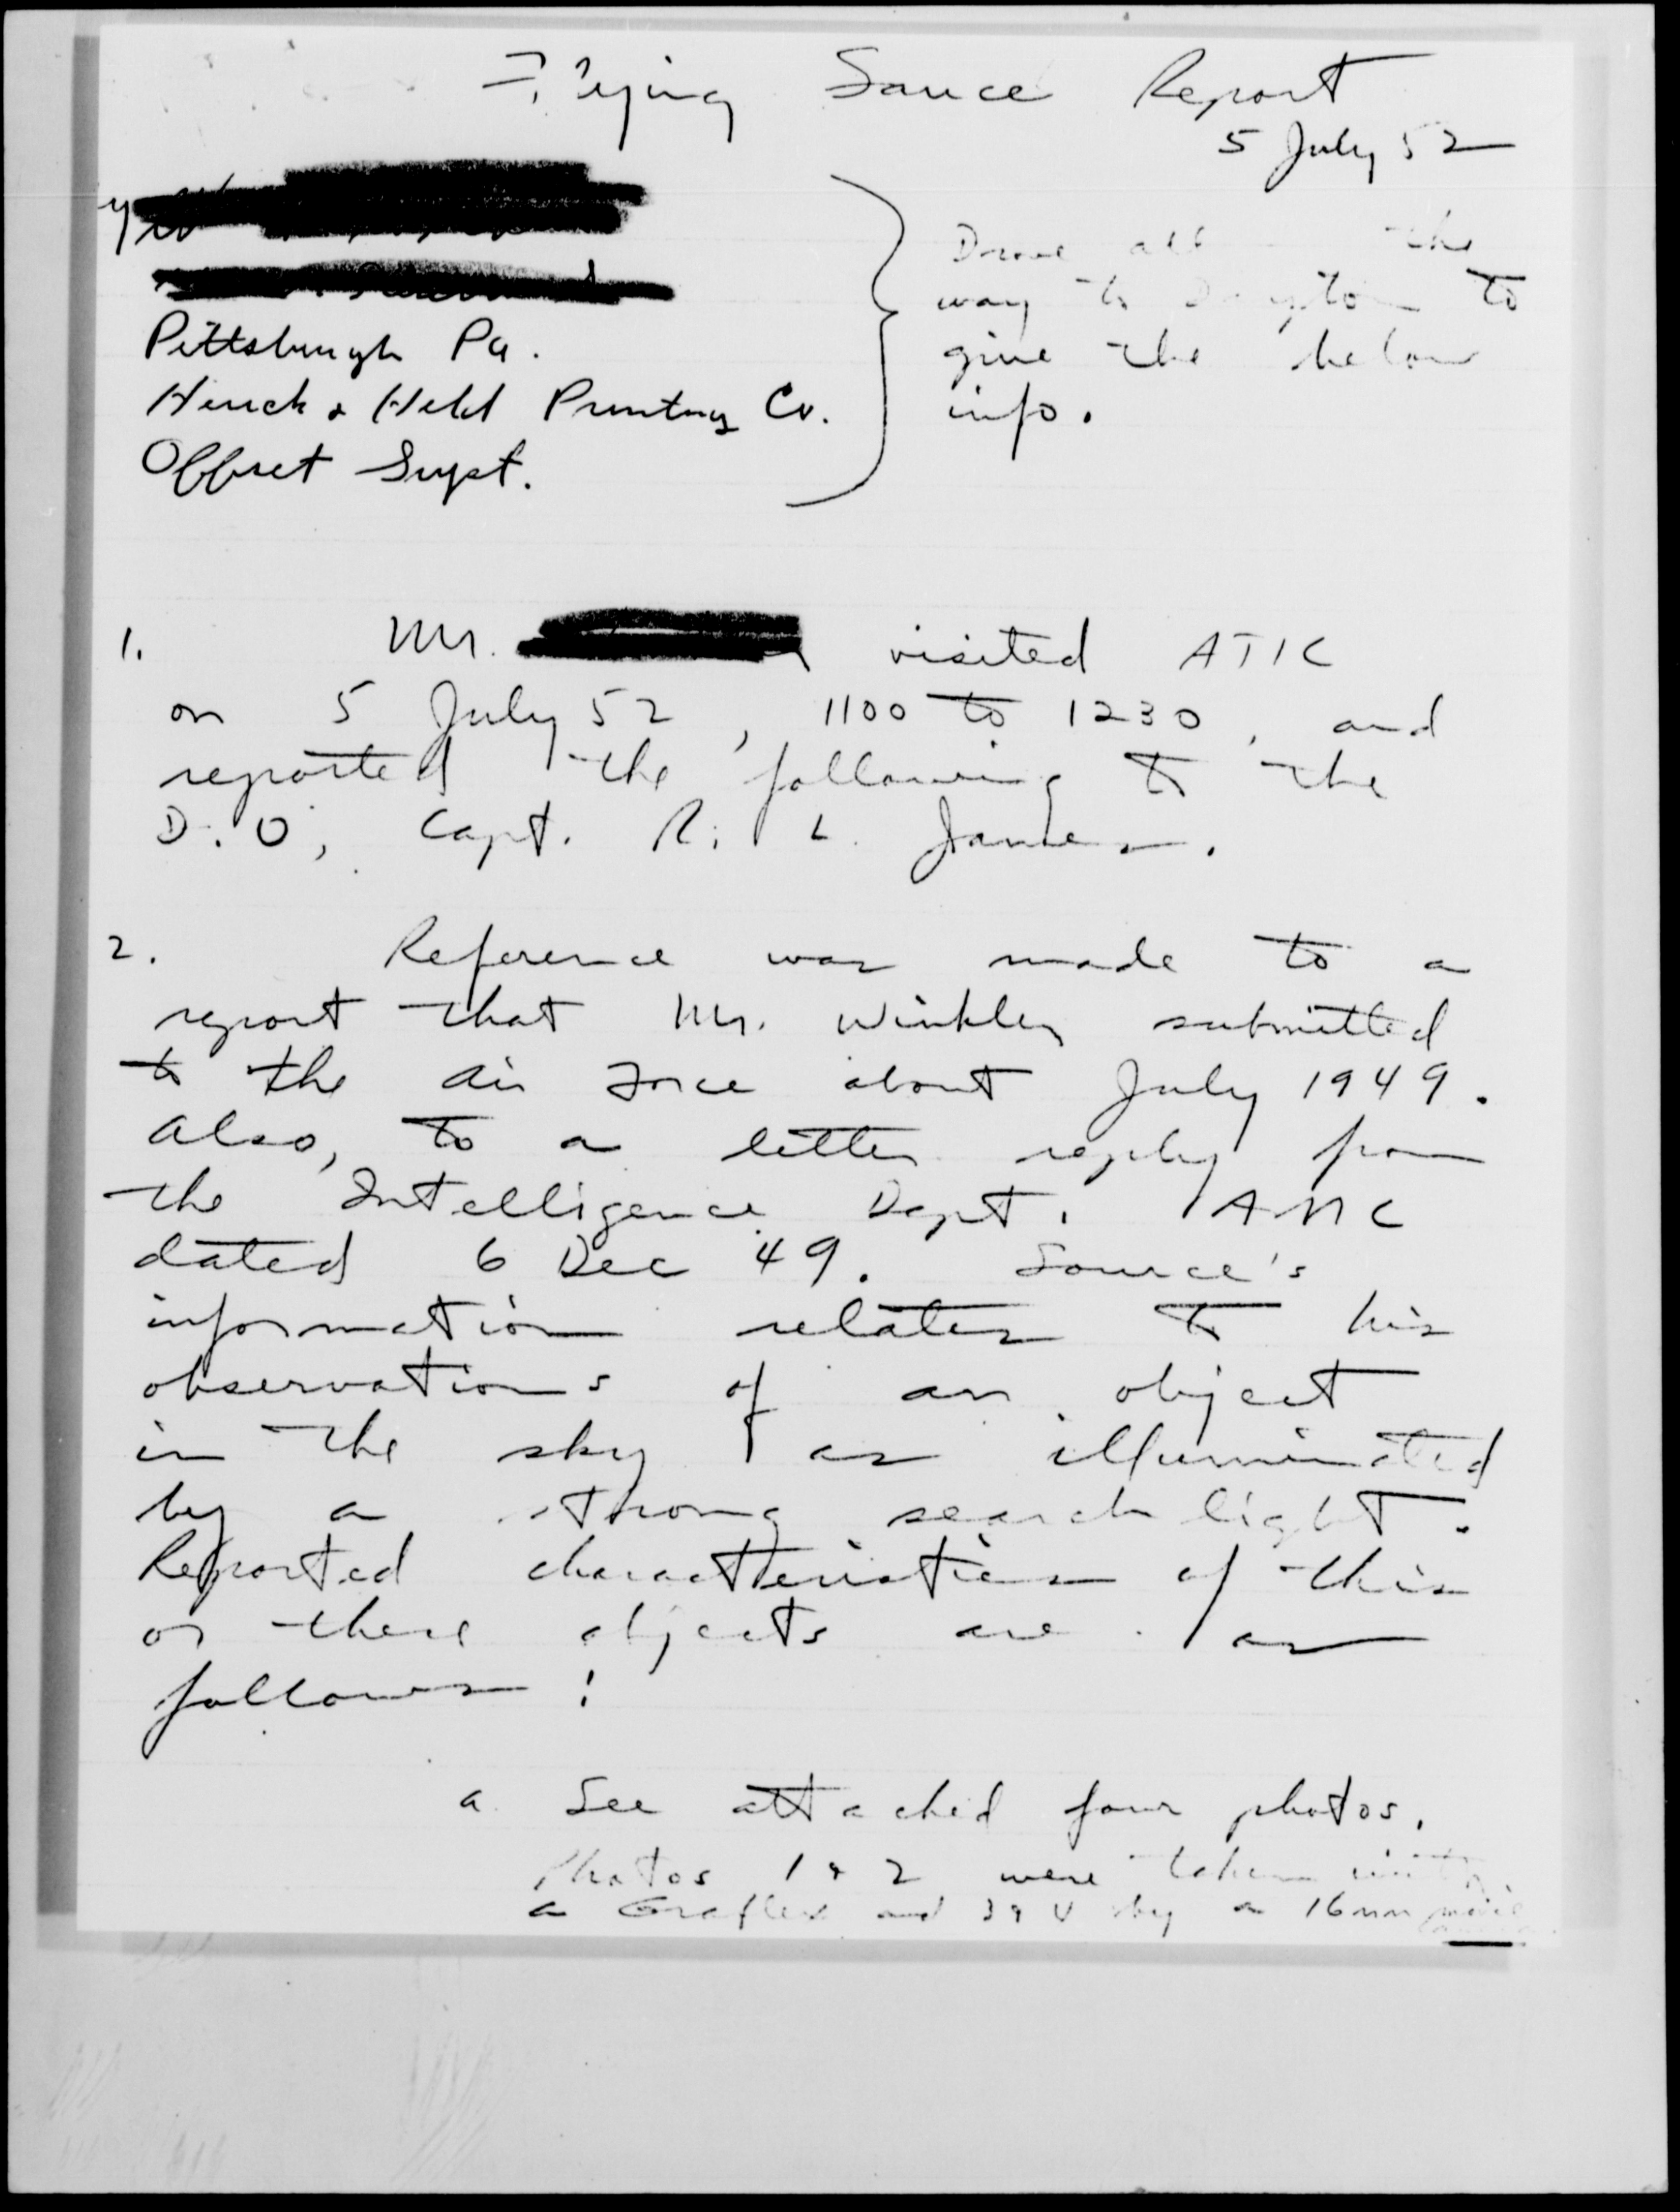 Flying Sauce Report
5 July 52
Pittsburgh Pa.
& Held Printing Co.
Offset Supt.
Drove all the
way to Dayton to
give the below
info.
1. Mr. visited ATIC
on 5 July 52, 1100 to 1230, and
reported the following to the
D.O, Capt. R. L. James.
2. Reference was made to a
report that Mr. Winkler submitted
to the Air Force about July 1949.
Also, to a letter reply from
the Intelligence Dept. AMC
dated 6 Dec 49. Source's
information relates to his
observations of an object
in the sky as illuminated
by a strong search light.
Reported characteristics of this
or these objects are as
follows:
a. See attached four photos.
Photos 1 & 2 were taken with
a Graflex and 3 & 4 by a 16mm movie